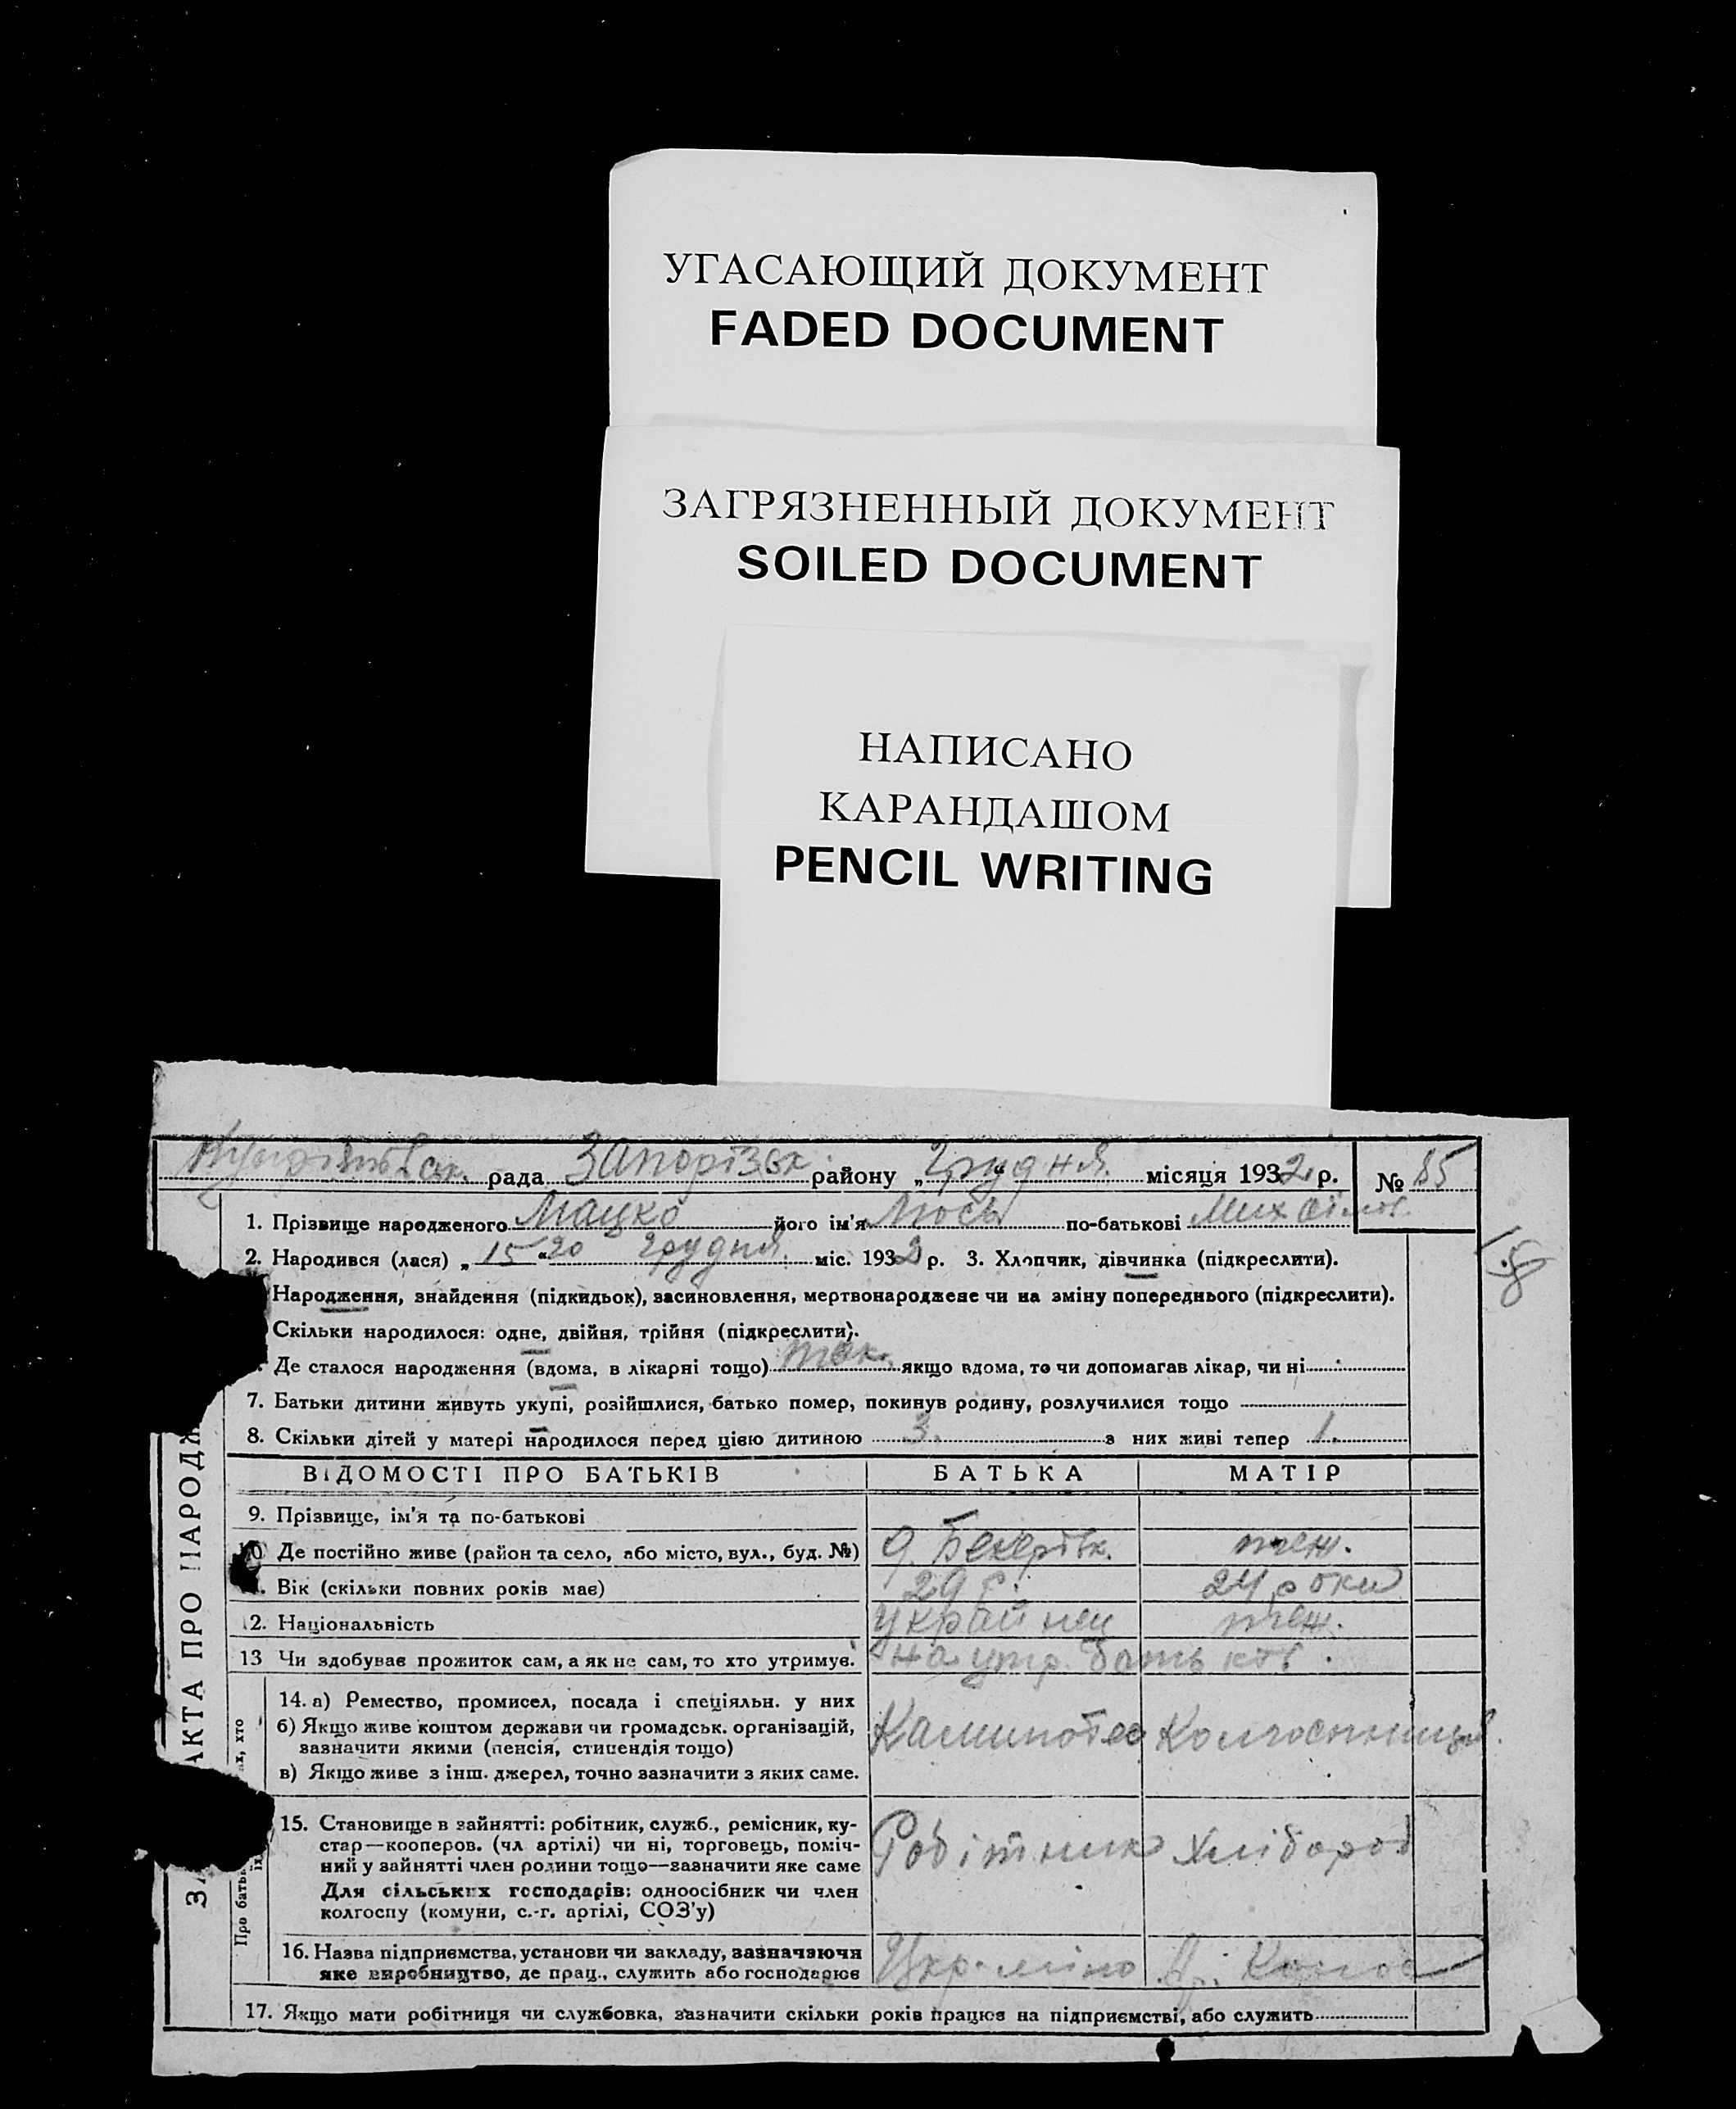 УГАСАЮЩИЙ ДОКУМЕНТ
FADED DOCUMENT
ЗАГРЯЗНЕННЫЙ ДОКУМЕНТ
SOILED DOCUMENT
НАПИСАНО
КАРАНДАШОМ
PENCIL WRITING
рада Запорізьк. району „Грудня. місяця 1932 р. № 85
1. Прізвище народженого Мацко його ім'я Люсы по-батькові Михайлов.
2. Народився (лася) „ 15 " 20 грудня. міс. 1932 р. 3. Хлопчик, дівчинка (підкреслити).
158
Народження, знайдення (підкидьок), засиновлення, мертвонароджене чи на зміну попереднього (підкреслити).
Скільки народилося: одне, двійня, трійня (підкреслити).
Де сталося народження (вдома, в лікарні тощо) так. якщо вдома, то чи допомагав лікар, чи ні
7. Батьки дитини живуть укупі, розійшлися, батько помер, покинув родину, розлучилися тощо
8. Скільки дітей у матері народилося перед цією дитиною 3. з них живі тепер 1.
ВІДОМОСТІ ПРО БАТЬКІВ БАТЬКА МАТІР
9. Прізвище, ім'я та по-батькові
10 Де постійно живе (район та село, або місто, вул., буд. №) теж.
Вік (скільки повних років має) 29 р. 24 роки
12. Національність українец теж.
13 Чи здобував прожиток сам, а як не сам, то хто утримує. на утр. батьків.
14. а) Ремество, промисел, посада і спеціяльн. у них
б) Якщо живе коштом держави чи громадськ. організацій,
зазначити якими (пенсія, стипендія тощо)
в) Якщо живе з інш. джерел, точно зазначити з яких саме.
15. Становище в зайнятті: робітник, служб., ремісник, ку-
стар—кооперов. (чл артілі) чи ні, торговець, поміч-
ний у зайнятті член родини тощо—зазначити яке саме
Робітник Хлібороб
Для сільських господарів: одноосібник чи член
колгоспу (комуни, с.-г. артілі, СОЗ'у)
16. Назва підприємства, установи чи закладу, зазначаючи
яке виробництво, де прац., служить або господарює
17. Якщо мати робітниця чи службовка, зазначити скільки років працює на підприємстві, або служить
АКТА ПРО НАРОДЖ